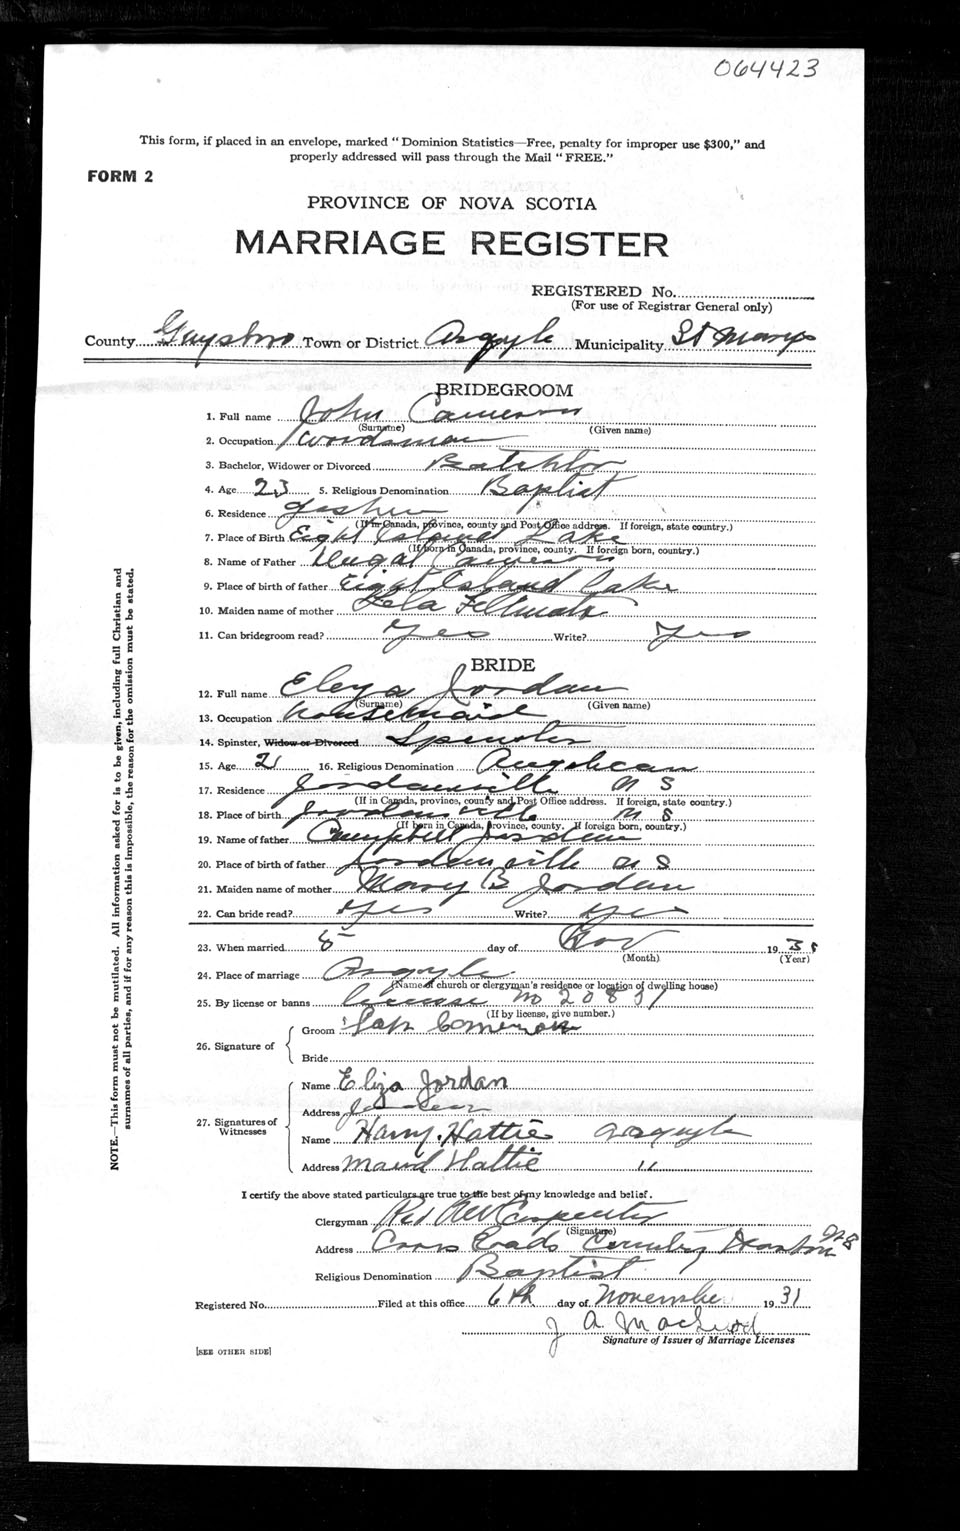 064423
This form, if placed in an envelope, marked “Dominion Statistics—Free, penalty for improper use $300,” and
properly addressed will pass through the Mail “FREE.”
FORM 2
PROVINCE OF NOVA SCOTIA
MARRIAGE REGISTER
REGISTERED No.
(For use of Registrar General only)
County Guysboro Town or District Argyle Municipality St Marys
BRIDEGROOM
1. Full name John Cameron
(Surname) (Given name)
2. Occupation Woodsman
3. Bachelor, Widower or Divorced
4. Age 23 5. Religious Denomination Baptist
6. Residence Goshen
(If in Canada, province, county and Post Office address. If foreign, state country.)
7. Place of Birth Eight Island Lake
(If born in Canada, province, county. If foreign born, country.)
8. Name of Father Dugal Cameron
9. Place of birth of father Eight Island Lake
10. Maiden name of mother
11. Can bridegroom read? Yes Write? Yes
BRIDE
12. Full name Jordan
(Surname) (Given name)
13. Occupation housemaid
14. Spinster, Widow or Divorced Spinster
15. Age 21 16. Religious Denomination Anglican
17. Residence Jordanville N S
(If in Canada, province, county and Post Office address. If foreign, state country.)
18. Place of birth Jordanville N S
(If born in Canada, province, county. If foreign born, country.)
19. Name of father Campbell Jordan
20. Place of birth of father Jordanville N S
21. Maiden name of mother Mary B Jordan
22. Can bride read? Yes Write? Yes
23. When married 5 day of Nov 1931
(Month) (Year)
24. Place of marriage Argyle
(Name of church or clergyman's residence or location of dwelling house)
25. By license or banns license no
(If by license, give number.)
26. Signature of
Groom
Bride
27. Signatures of Witnesses
Name Eliza Jordan
Address
Name Harry Hattie Argyle
Address Maud Hattie "
I certify the above stated particulars are true to the best of my knowledge and belief.
Clergyman Carpenter
(Signature)
Address Cross Roads Country Harbor N S
Religious Denomination Baptist
Registered No. Filed at this office 6th day of November 1931
J A MacLeod
Signature of Issuer of Marriage Licenses
[SEE OTHER SIDE]
NOTE.—This form must not be mutilated. All information asked for is to be given, including full Christian and
surnames of all parties, and if for any reason this is impossible, the reason for the omission must be stated.